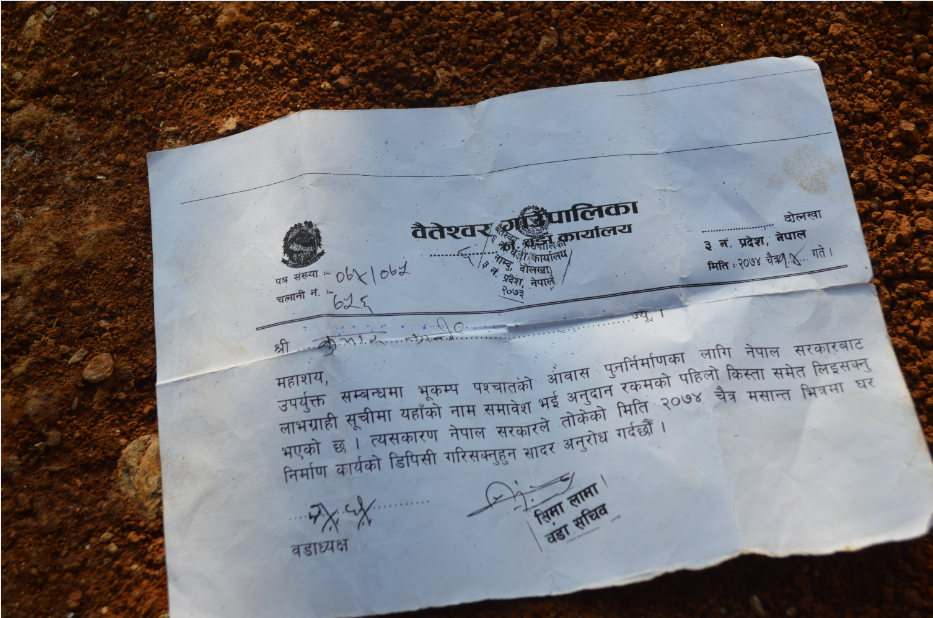 वैतेश्वर गाउँपालिका
नं वडा कार्यालय
वडा कार्यालय
नाम्दु, दोलखा
३ नं. प्रदेश, नेपाल
२०७३
दोलखा
३ नं. प्रदेश, नेपाल
मिति : २०७४ चैत्र गते ।
पत्र संख्या :- ०७४/०७५
चलानी नं. :-
श्री कुमार ज्यू ।
महाशय,
उपर्युक्त सम्बन्धमा भूकम्प पश्चातको आवास पुनर्निर्माणका लागि नेपाल सरकारबाट
लाभग्राही सूचीमा यहाँको नाम समावेश भई अनुदान रकमको पहिलो किस्ता समेत लिइसक्नु
भएको छ । त्यसकारण नेपाल सरकारले तोकेको मिति २०७४ चैत्र मसान्त भित्रमा घर
निर्माण कार्यको डिपिसी गरिसक्नुहुन सादर अनुरोध गर्दछौं ।
वडाध्यक्ष
सिमा लामा
वडा सचिव